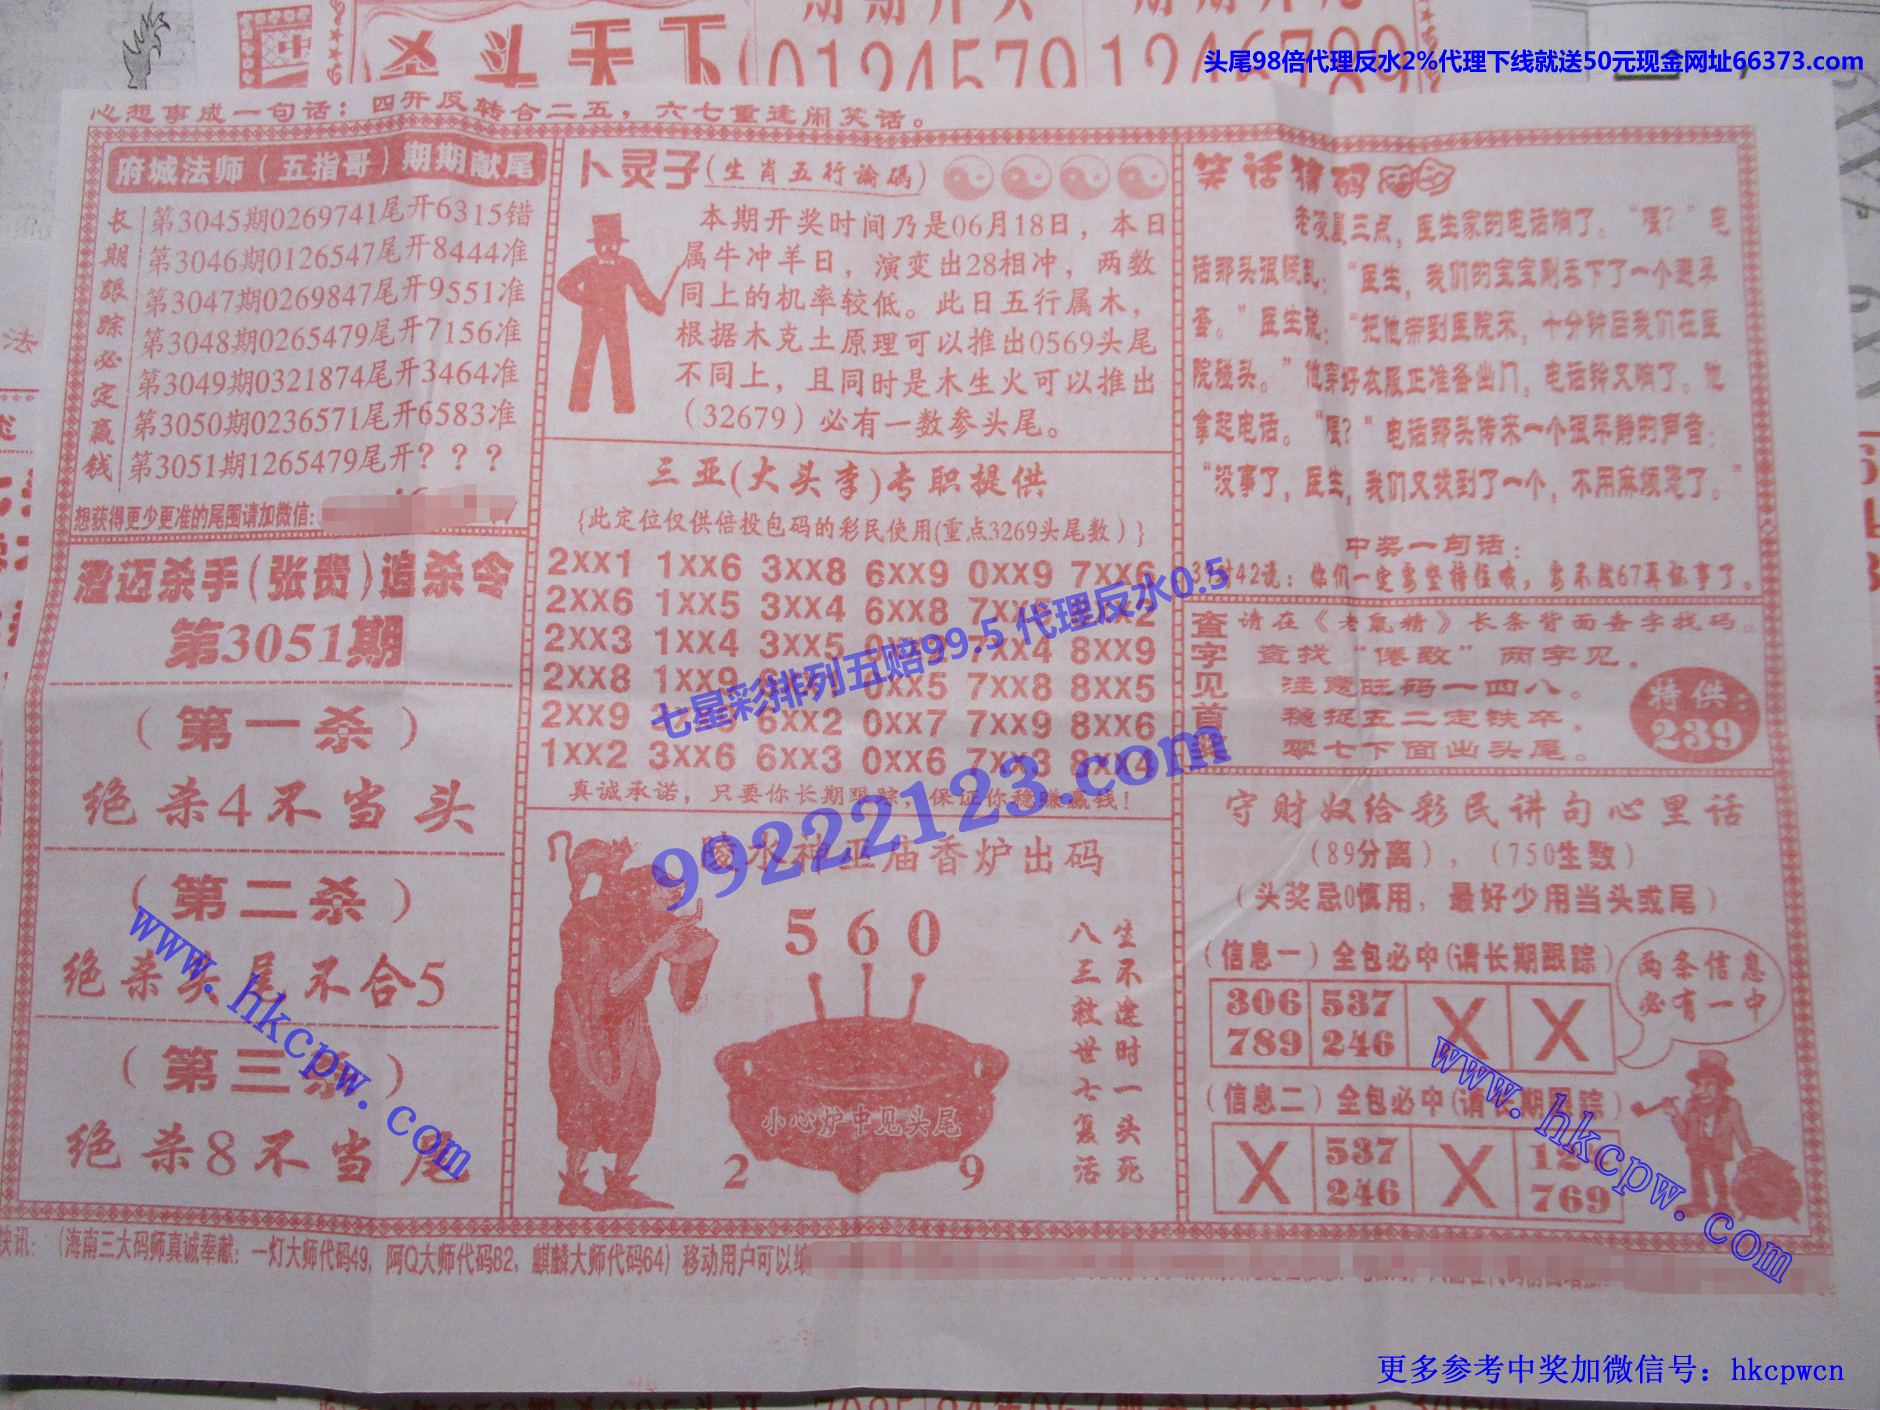 期期开头
期期开尾
斗天下
01245791246789
头尾98倍代理反水2%代理下线就送50元现金网址66373.com
心想事成一句话：四开反转合二五，六七重逢闹笑话。
府城法师（五指哥）期期献尾
长期跟踪必定赢钱
第3045期0269741尾开6315错
第3046期0126547尾开8444准
第3047期0269847尾开9551准
第3048期0265479尾开7156准
第3049期0321874尾开3464准
第3050期0236571尾开6583准
第3051期1265479尾开？？？
想获得更少更准的尾图请加微信:
澄迈杀手(张贵)追杀令
第3051期
（第一杀）
绝杀4不当头
（第二杀）
绝杀头尾不合5
（第三杀）
绝杀8不当尾
卜灵子(生肖五行論碼)
本期开奖时间乃是06月18日，本日
属牛冲羊日，演变出28相冲，两数
同上的机率较低。此日五行属木，
根据木克土原理可以推出0569头尾
不同上，且同时是木生火可以推出
（32679）必有一数参头尾。
三亚(大头李)专职提供
{此定位仅供倍投包码的彩民使用(重点3269头尾数）}
2XX1 1XX6 3XX8 6XX9 0XX9 7XX6
2XX6 1XX5 3XX4 6XX8
2XX3 1XX4 3XX5 7XX4 8XX9
2XX8 1XX9 0XX5 7XX8 8XX5
2XX9 6XX2 0XX7 7XX9 8XX6
1XX2 3XX6 6XX3 0XX6 7XX3 8XX4
真诚承诺，只要你长期跟踪，保证你稳赚赢钱！
七星彩排列五赔99.5 代理反水0.5
99222123.com
陵水神巫庙香炉出码
560
小心炉中见头尾
2 9
生不逢时一头死
八三救世七复活
笑话猜码
老凌晨三点，医生家的电话响了。“喂？”电
话那头很慌乱：“医生，我们的宝宝刚丢下了一个避孕
套。”医生说：“把他带到医院来，十分钟后我们在医
院碰头。”他穿好衣服正准备出门，电话铃又响了。他
拿起电话。“喂？”电话那头传来一个很平静的声音：
“没事了，医生，我们又找到了一个，不用麻烦您了。”
中奖一句话：
42说：你们一定要坚持住哦，要不然67真坏事了。
查字见首奖
请在《老鼠精》长条背面查字找码。
查找“倦致”两字见，
注意旺码一四八。
稳捉五二定铁卒，
零七下面出头尾。
特供：
239
守财奴给彩民讲句心里话
（89分离），（750生数）
（头奖忌0慎用，最好少用当头或尾）
（信息一）全包必中(请长期跟踪)
306 537 X X
789 246
两条信息
必有一中
（信息二）全包必中(请长期跟踪)
X 537 X
246 769
www.hkcpw.com
www.hkcpw.com
快讯：（海南三大码师真诚奉献：一灯大师代码49，阿Q大师代码82，麒麟大师代码64）移动用户可以编
更多参考中奖加微信号：hkcpwcn